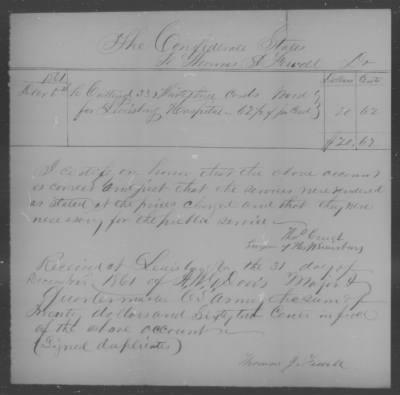 The Confederate States
To Thomas J. Jewell Dr
1861 Dollars Cents
Decr 6th To Cutting 33 Thirty three Cords Wood
for Lewisburg Hospital 62½ pr Cord 20 62
$20.62
I certify on honor that the above account
is correct and just that the services were rendered
as stated at the prices charged and that they were
necessary for the public service
Thos Creigh
Surgeon of the
Received at Lewisburg Va the 31 day of
December 1861 of Major &
Quartermaster C S Army the sum of
Twenty dollars and Sixty two Cents in full
of the above account
(Signed duplicates)
Thomas J. Jewell